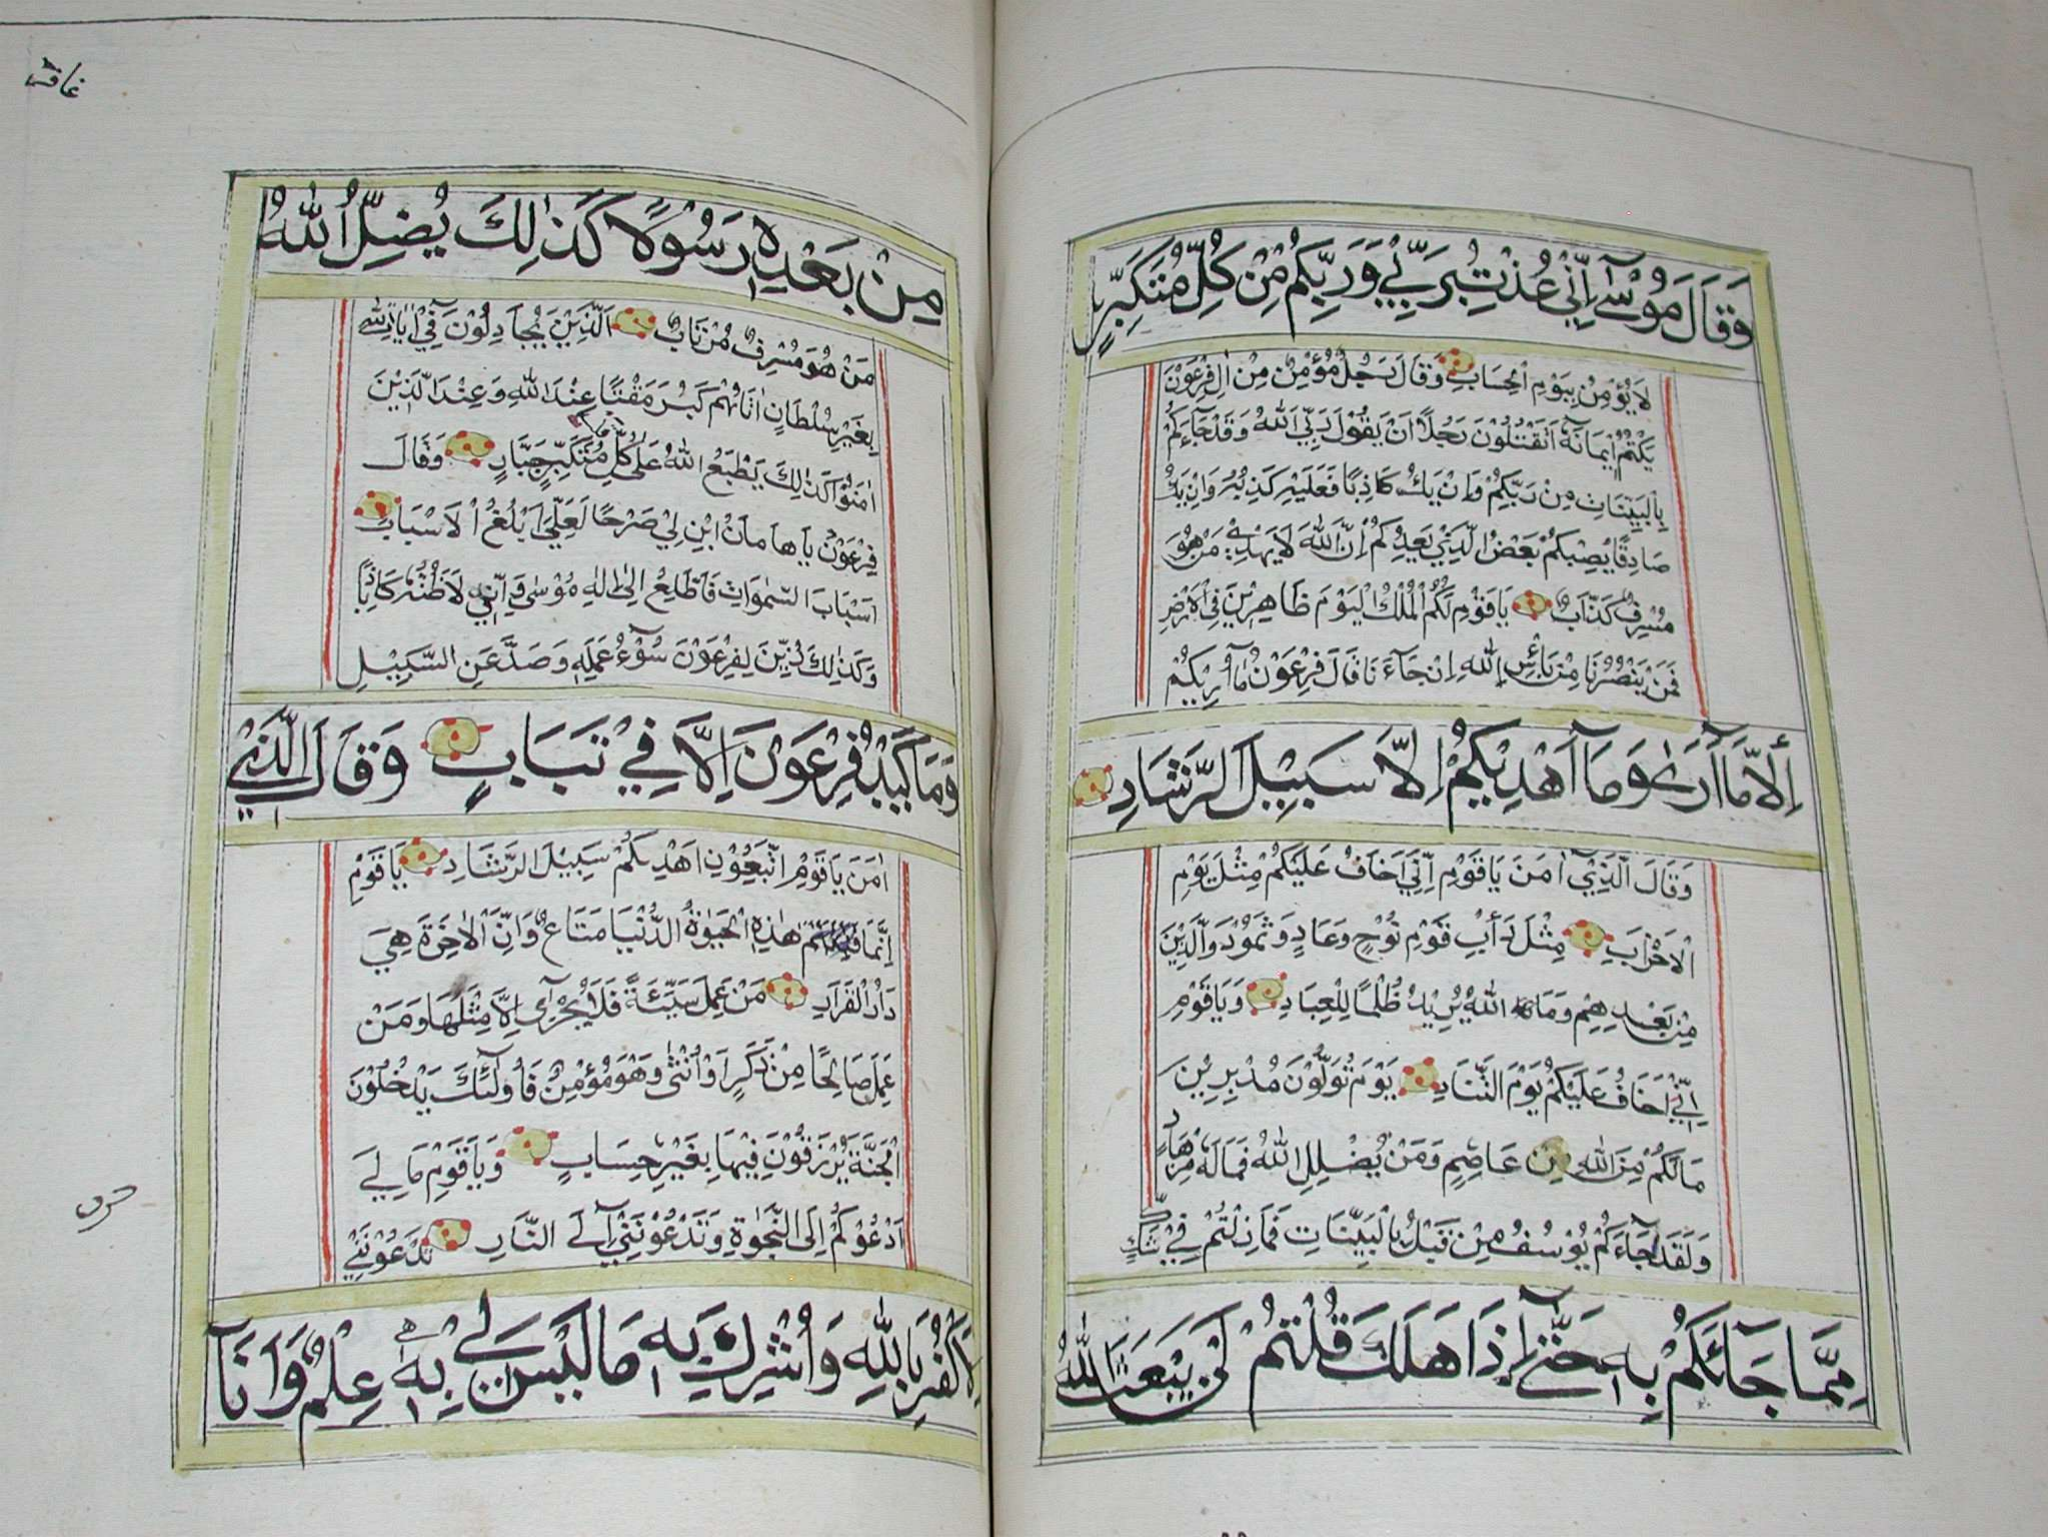 وَقَالَ مُوْسٰٓى اِنِّيْ عُذْتُ بِرَبِّيْ وَرَبِّكُمْ مِنْ كُلِّ مُتَكَبِّرٍ
لَا يُؤْمِنُ بِيَوْمِ الْحِسَابِ وَقَالَ رَجُلٌ مُؤْمِنٌ مِنْ اٰلِ فِرْعَوْنَ
يَكْتُمُ اِيمَانَهٗٓ اَتَقْتُلُوْنَ رَجُلًا اَنْ يَقُوْلَ رَبِّيَ اللّٰهُ وَقَدْ جَآءَكُمْ
بِالْبَيِّنَاتِ مِنْ رَبِّكُمْ وَاِنْ يَكُ كَاذِبًا فَعَلَيْهِ كَذِبُهُ وَاِنْ يَكُ
صَادِقًا يُصِبْكُمْ بَعْضُ الَّذِيْ يَعِدُكُمْ اِنَّ اللّٰهَ لَا يَهْدِيْ مَنْ هُوَ
مُسْرِفٌ كَذَّابٌ يَاقَوْمِ لَكُمُ الْمُلْكُ الْيَوْمَ ظَاهِرِيْنَ فِي الْاَرْضِ
فَمَنْ يَنْصُرُنَا مِنْ بَأْسِ اللّٰهِ اِنْ جَآءَنَا قَالَ فِرْعَوْنُ مَآ اُرِيْكُمْ
اِلَّا مَآ اَرٰى وَمَآ اَهْدِيْكُمْ اِلَّا سَبِيْلَ الرَّشَادِ
وَقَالَ الَّذِيْٓ اٰمَنَ يَاقَوْمِ اِنِّيْٓ اَخَافُ عَلَيْكُمْ مِثْلَ يَوْمِ
الْاَحْزَابِ مِثْلَ دَأْبِ قَوْمِ نُوْحٍ وَعَادٍ وَثَمُوْدَ وَالَّذِيْنَ
مِنْ بَعْدِهِمْ وَمَا اللّٰهُ يُرِيْدُ ظُلْمًا لِلْعِبَادِ وَيَاقَوْمِ
اِنِّيْٓ اَخَافُ عَلَيْكُمْ يَوْمَ التَّنَادِ يَوْمَ تُوَلُّوْنَ مُدْبِرِيْنَ
مَالَكُمْ مِنَ اللّٰهِ مِنْ عَاصِمٍ وَمَنْ يُضْلِلِ اللّٰهُ فَمَالَهٗ مِنْ هَادٍ
وَلَقَدْ جَآءَكُمْ يُوْسُفُ مِنْ قَبْلُ بِالْبَيِّنَاتِ فَمَا زِلْتُمْ فِيْ شَكٍّ
مِمَّا جَآئَكُمْ بِهٖ حَتّٰىٓ اِذَا هَلَكَ قُلْتُمْ لَنْ يَبْعَثَ اللّٰهُ
غافر
مِنْ بَعْدِهٖ رَسُوْلًا كَذٰلِكَ يُضِلُّ اللّٰهُ
مَنْ هُوَ مُسْرِفٌ مُرْتَابٌ الَّذِيْنَ يُجَادِلُوْنَ فِيْٓ اٰيَاتِ اللّٰهِ
بِغَيْرِ سُلْطَانٍ اَتَاهُمْ كَبُرَ مَقْتًا عِنْدَ اللّٰهِ وَعِنْدَ الَّذِيْنَ
اٰمَنُوْا كَذٰلِكَ يَطْبَعُ اللّٰهُ عَلٰى كُلِّ مُتَكَبِّرٍ جَبَّارٍ وَقَالَ
فِرْعَوْنُ يَاهَامَانُ ابْنِ لِيْ صَرْحًا لَعَلِّيْٓ اَبْلُغُ الْاَسْبَابَ
اَسْبَابَ السَّمٰوَاتِ فَاَطَّلِعَ اِلٰٓى اِلٰهِ مُوْسٰى وَاِنِّيْ لَاَظُنُّهٗ كَاذِبًا
وَكَذٰلِكَ زُيِّنَ لِفِرْعَوْنَ سُوْٓءُ عَمَلِهٖ وَصُدَّ عَنِ السَّبِيْلِ
وَمَا كَيْدُ فِرْعَوْنَ اِلَّا فِيْ تَبَابٍ وَقَالَ الَّذِيْٓ
اٰمَنَ يَاقَوْمِ اتَّبِعُوْنِ اَهْدِكُمْ سَبِيْلَ الرَّشَادِ يَاقَوْمِ
اِنَّمَا هٰذِهِ الْحَيٰوةُ الدُّنْيَا مَتَاعٌ وَاِنَّ الْاٰخِرَةَ هِيَ
دَارُ الْقَرَارِ مَنْ عَمِلَ سَيِّئَةً فَلَا يُجْزٰٓى اِلَّا مِثْلَهَا وَمَنْ
عَمِلَ صَالِحًا مِنْ ذَكَرٍ اَوْ اُنْثٰى وَهُوَ مُؤْمِنٌ فَاُولٰٓئِكَ يَدْخُلُوْنَ
الْجَنَّةَ يُرْزَقُوْنَ فِيْهَا بِغَيْرِ حِسَابٍ وَيَاقَوْمِ مَا لِيْٓ
اَدْعُوْكُمْ اِلَى النَّجٰوةِ وَتَدْعُوْنَنِيْٓ اِلَى النَّارِ تَدْعُوْنَنِيْ
لِاَكْفُرَ بِاللّٰهِ وَاُشْرِكَ بِهٖ مَا لَيْسَ لِيْ بِهٖ عِلْمٌ وَاَنَا